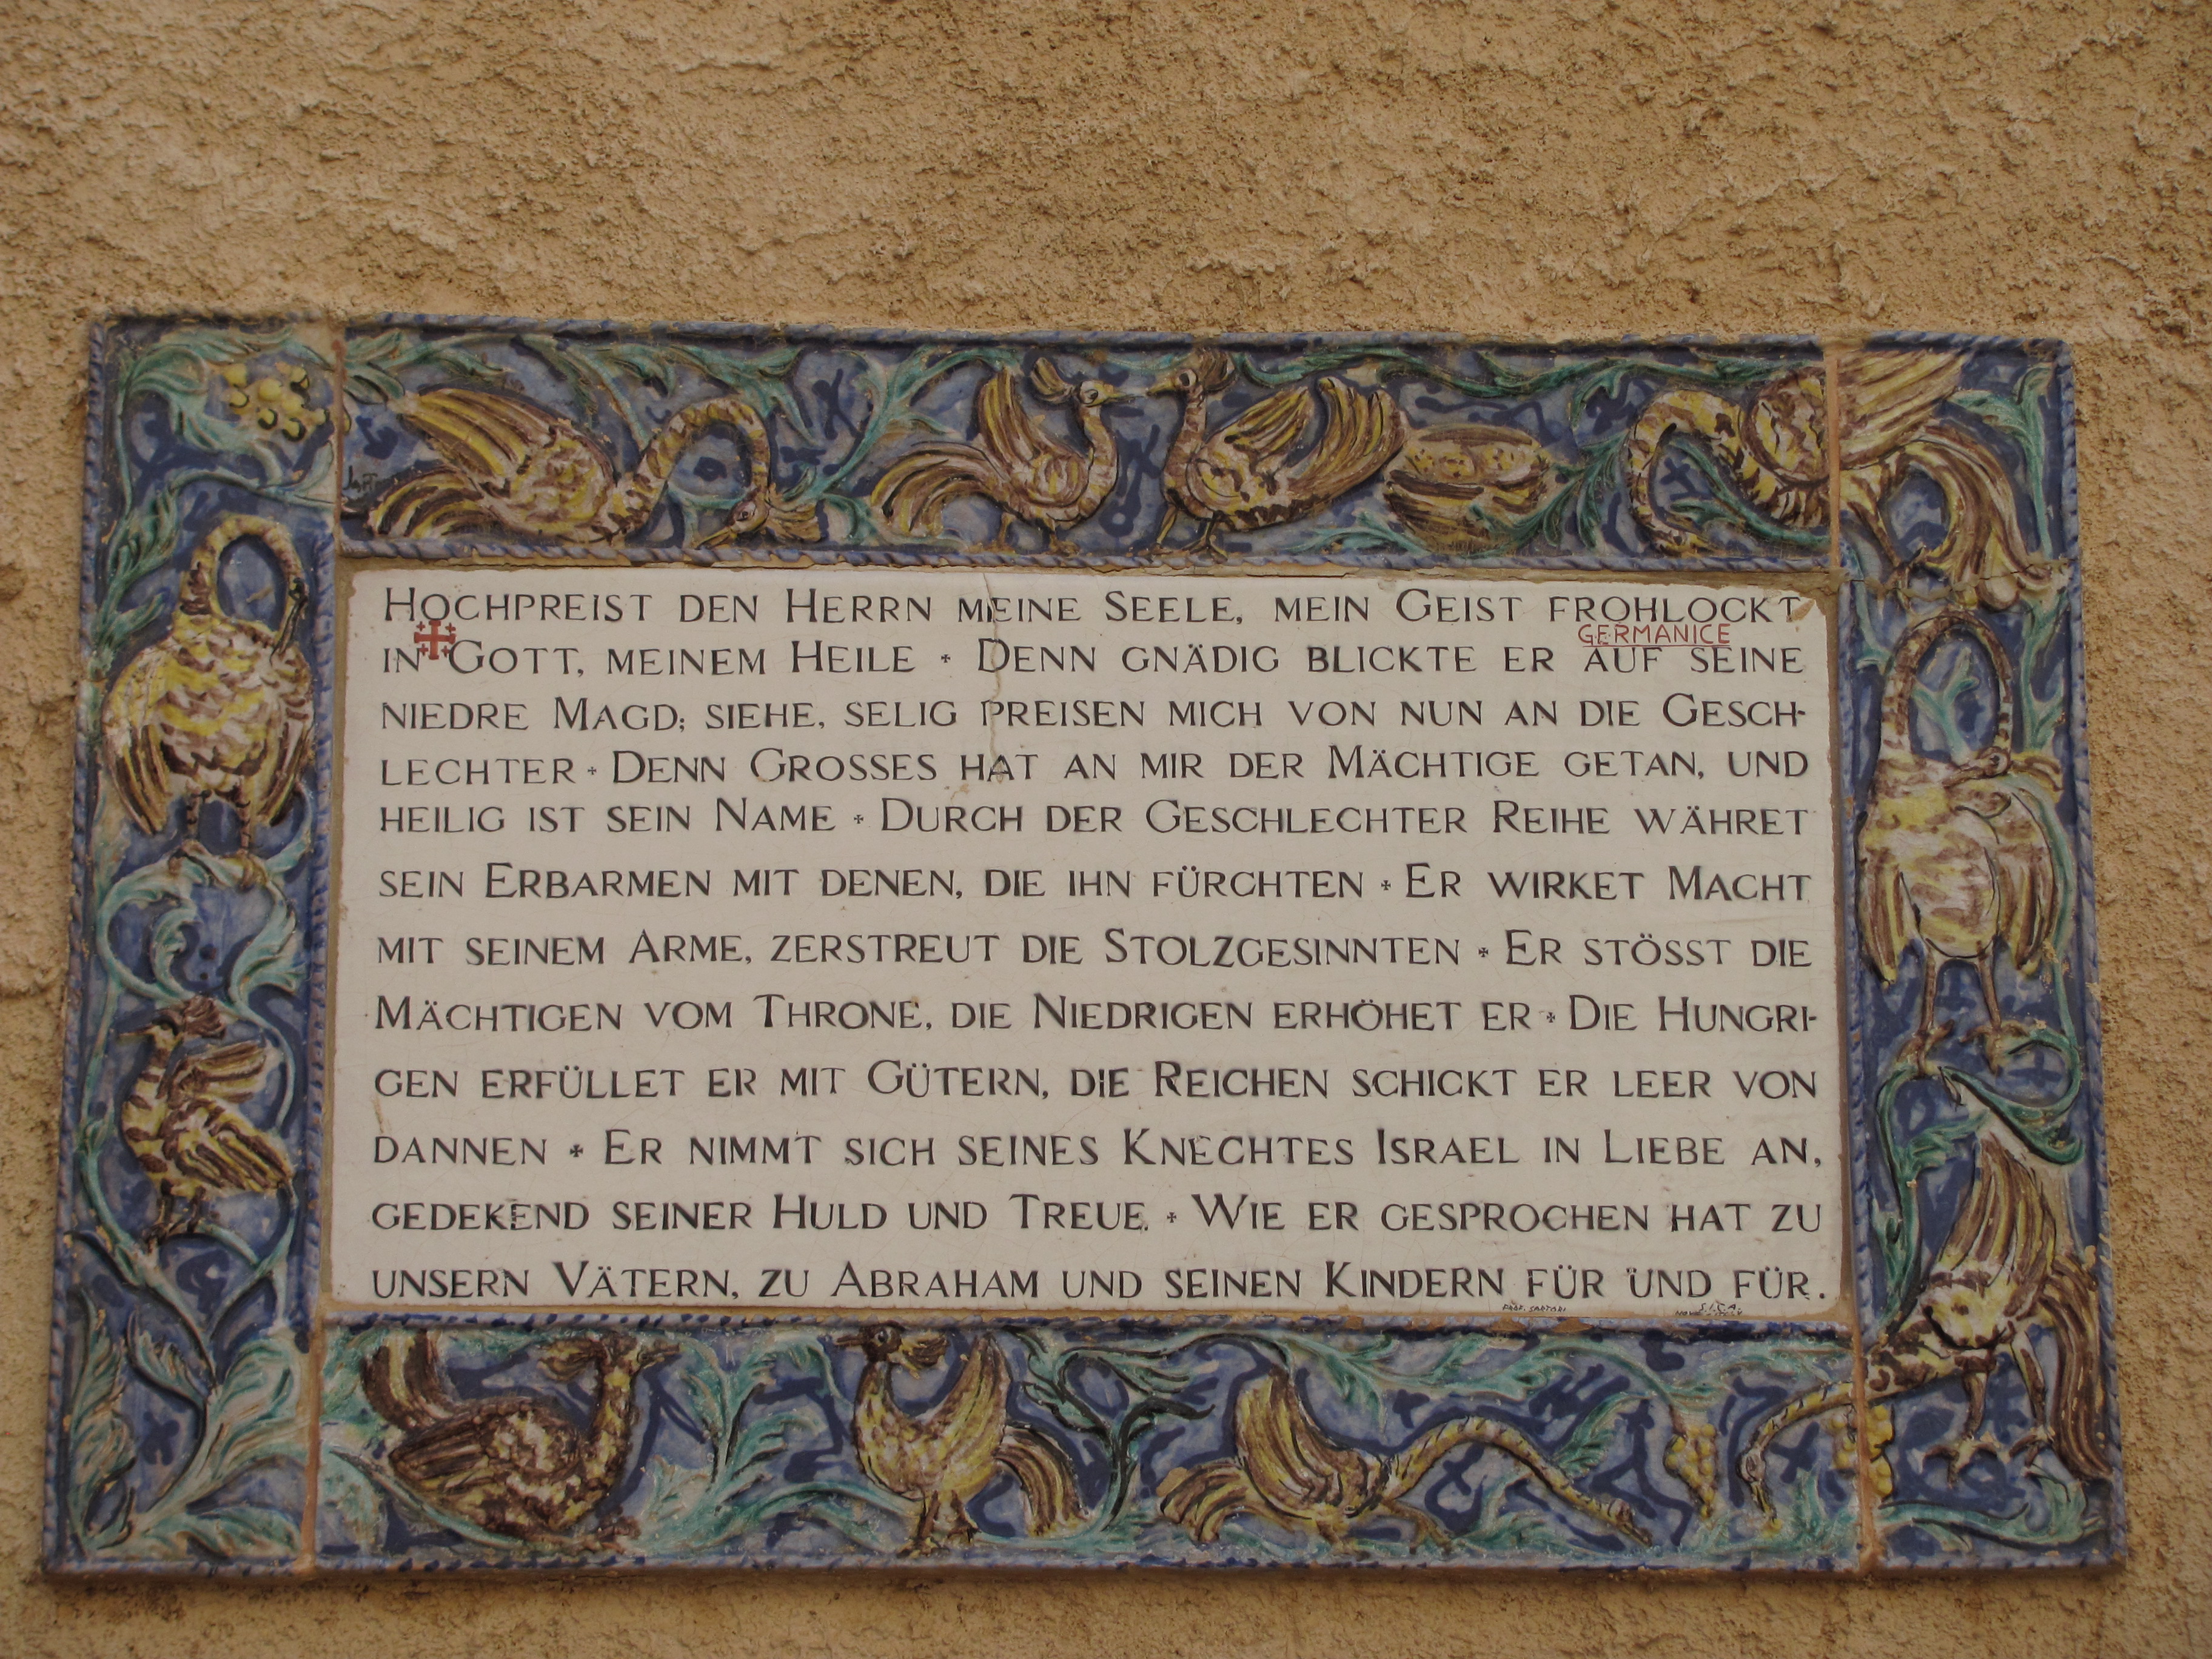 HOCHPREIST DEN HERRN MEINE SEELE, MEIN GEIST FROHLOCKT
GERMANICE
IN GOTT, MEINEM HEILE + DENN GNÄDIG BLICKTE ER AUF SEINE
NIEDRE MAGD; SIEHE, SELIG PREISEN MICH VON NUN AN DIE GESCH-
LECHTER + DENN GROSSES HAT AN MIR DER MÄCHTIGE GETAN, UND
HEILIG IST SEIN NAME + DURCH DER GESCHLECHTER REIHE WÄHRET
SEIN ERBARMEN MIT DENEN, DIE IHN FÜRCHTEN + ER WIRKET MACHT
MIT SEINEM ARME, ZERSTREUT DIE STOLZGESINNTEN + ER STÖSST DIE
MÄCHTIGEN VOM THRONE, DIE NIEDRIGEN ERHÖHET ER + DIE HUNGRI-
GEN ERFÜLLET ER MIT GÜTERN, DIE REICHEN SCHICKT ER LEER VON
DANNEN + ER NIMMT SICH SEINES KNECHTES ISRAEL IN LIEBE AN,
GEDEKEND SEINER HULD UND TREUE. + WIE ER GESPROCHEN HAT ZU
UNSERN VÄTERN, ZU ABRAHAM UND SEINEN KINDERN FÜR UND FÜR.